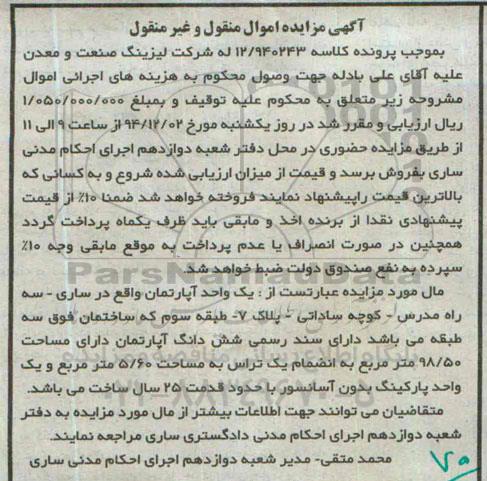 آگهی مزایده اموال منقول و غیر منقول
بموجب پرونده کلاسه ۱۲/۹۴۰۲۴۳ له شرکت لیزینگ صنعت و معدن
علیه آقای علی بادله جهت وصول محکوم به هزینه های اجرائی اموال
مشروحه زیر متعلق به محکوم علیه توقیف و بمبلغ ۱/۰۵۰/۰۰۰/۰۰۰
ریال ارزیابی و مقرر شد در روز یکشنبه مورخ ۹۴/۱۲/۰۲ از ساعت ۹ الی ۱۱
از طریق مزایده حضوری در محل دفتر شعبه دوازدهم اجرای احکام مدنی
ساری بفروش برسد و قیمت از میزان ارزیابی شده شروع و به کسانی که
بالاترین قیمت راپیشنهاد نمایند فروخته خواهد شد ضمنا ۱۰٪ از قیمت
پیشنهادی نقدا از برنده اخذ و مابقی باید ظرف یکماه پرداخت گردد
همچنین در صورت انصراف یا عدم پرداخت به موقع مابقی وجه ۱۰٪
سپرده به نفع صندوق دولت ضبط خواهد شد.
ParsNamadData
مال مورد مزایده عبارتست از : یک واحد آپارتمان واقع در ساری - سه
راه مدرس - کوچه ساداتی - پلاک ۷- طبقه سوم که ساختمان فوق سه
طبقه می باشد دارای سند رسمی شش دانگ آپارتمان دارای مساحت
۹۸/۵۰ متر مربع به انضمام یک تراس به مساحت ۵/۶۰ متر مربع و یک
واحد پارکینگ بدون آسانسور با حدود قدمت ۲۵ سال ساخت می باشد.
متقاضیان می توانند جهت اطلاعات بیشتر از مال مورد مزایده به دفتر
شعبه دوازدهم اجرای احکام مدنی دادگستری ساری مراجعه نمایند.
محمد متقی- مدیر شعبه دوازدهم اجرای احکام مدنی ساری